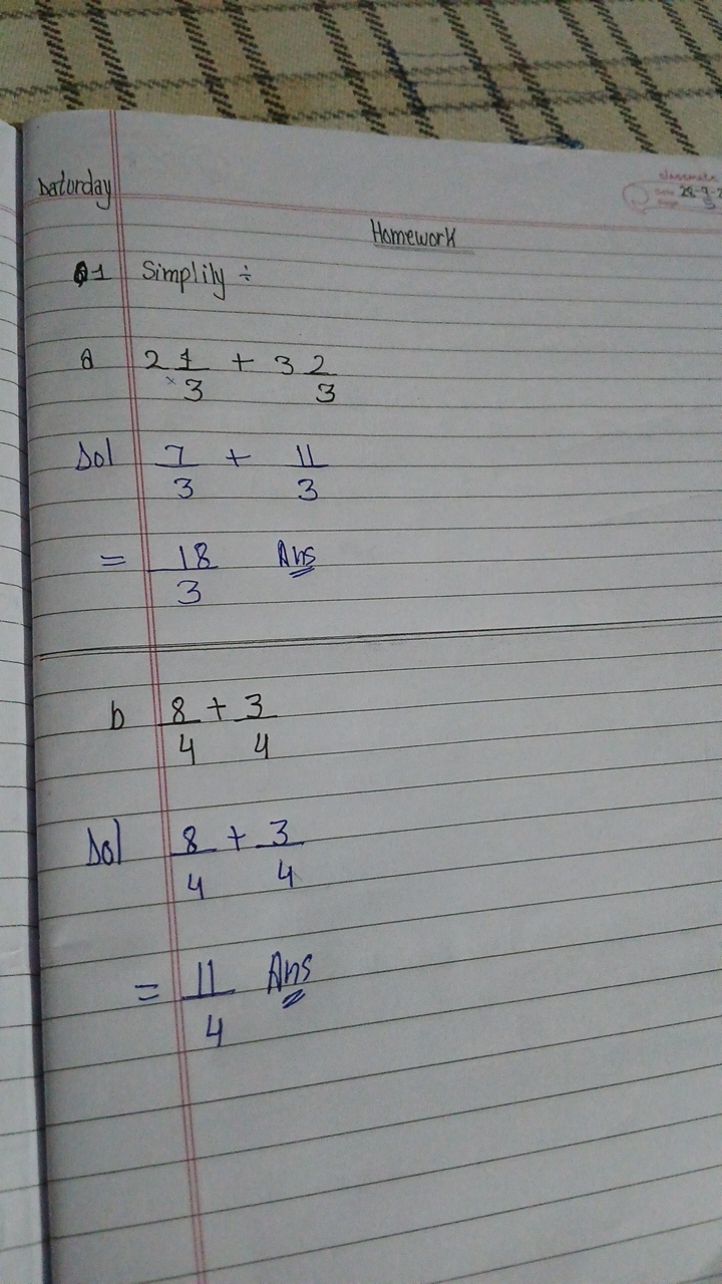 Saturday
classmate
Date 28-9-2
Page 5
Homework
Q1 Simplily ÷
a 2 1/3 + 3 2/3
Sol 7/3 + 11/3
= 18/3 Ans
b 8/4 + 3/4
Sol 8/4 + 3/4
= 11/4 Ans